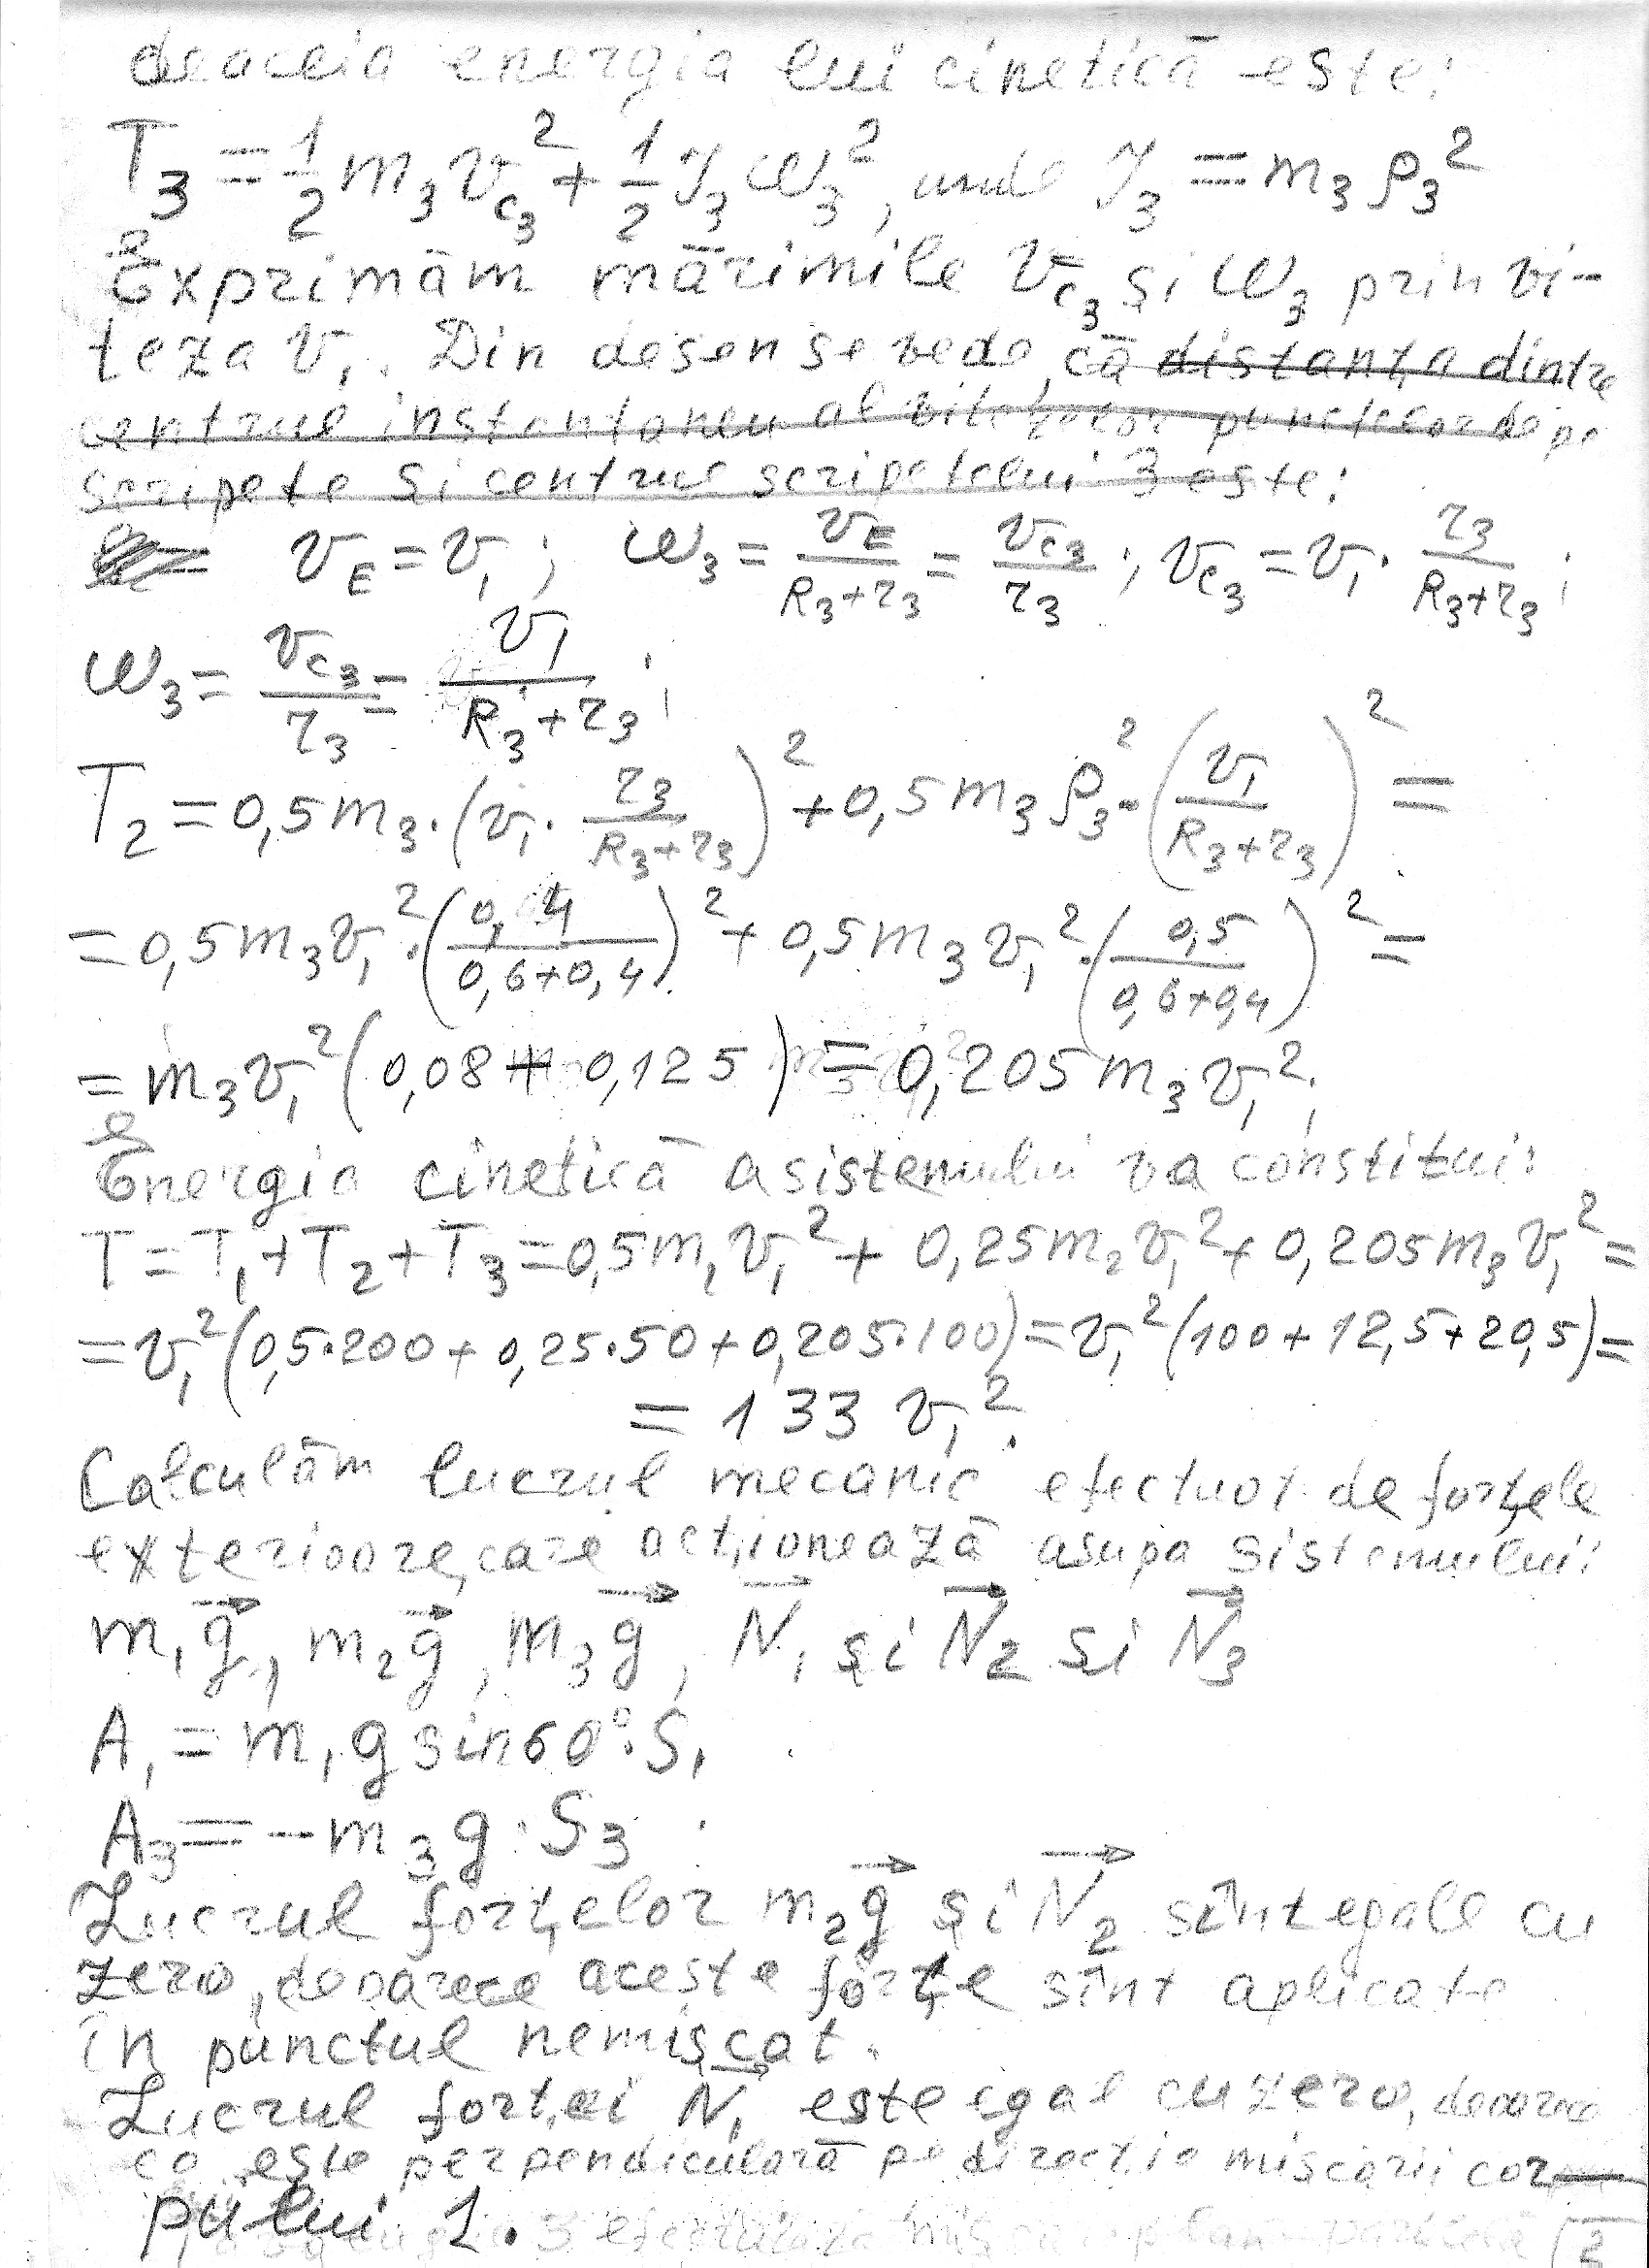 deaceia energia lui cinetică este:
T₃ = 1/2 m₃ v_c₃² + 1/2 J₃ ω₃², unde J₃ = m₃ ρ₃²
Exprimăm mărimile v_c₃ și ω₃ prin vi-
teza v₁. Din desen se vede, că distanța dintre
centrul instantaneu al vitezelor punctelor de pe
scripete și centrul scripetelui 3 este:
v_E = v₁; ω₃ = v_E/(R₃+r₃) = v_c₃/r₃; v_c₃ = v₁ · r₃/(R₃+r₃);
ω₃ = v_c₃/r₃ = v₁/(R₃+r₃);
T₂ = 0,5 m₃ · (v₁ · r₃/(R₃+r₃))² + 0,5 m₃ ρ₃² · (v₁/(R₃+r₃))² =
= 0,5 m₃ v₁² · (0,4/(0,6+0,4))² + 0,5 m₃ v₁² · (0,5/(0,6+0,4))² =
= m₃ v₁² (0,08 + 0,125) = 0,205 m₃ v₁²;
Energia cinetică a sistemului va constitui:
T = T₁ + T₂ + T₃ = 0,5 m₁ v₁² + 0,25 m₂ v₁² + 0,205 m₃ v₁² =
= v₁² (0,5·200 + 0,25·50 + 0,205·100) = v₁² (100 + 12,5 + 20,5) =
= 133 v₁².
Calculăm lucrul mecanic efectuat de forțele
exterioare, care acționează asupa sistemului:
m₁g⃗, m₂g⃗, m₃g⃗, N⃗₁ și N⃗₂ si N⃗₃
A₁ = m₁ g sin 60° · S₁
A₃ = -m₃ g · S₃
Lucrul forțelor m₂g⃗ și N⃗₂ sînt egale cu
zero, deoarece aceste forțe sînt aplicate
în punctul nemișcat.
Lucrul forței N⃗₁ este egal cu zero, deoarece
ea este perpendiculară pe direcția miscării cor-
pului 1.